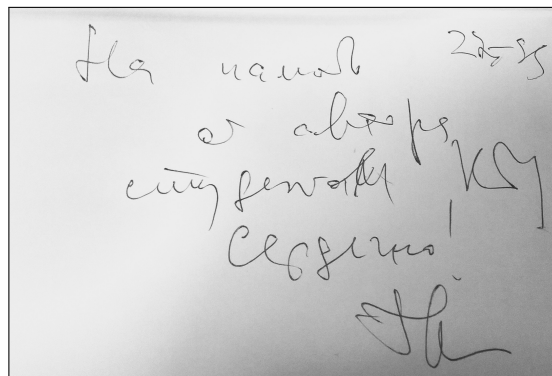 На память
от автора
студентам КГУ
Сердечно!